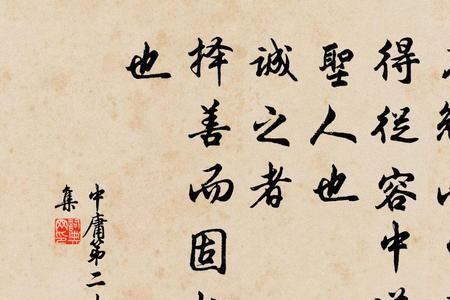 得從容中
聖人也
誠之者
择善而固
也
中庸第二
集